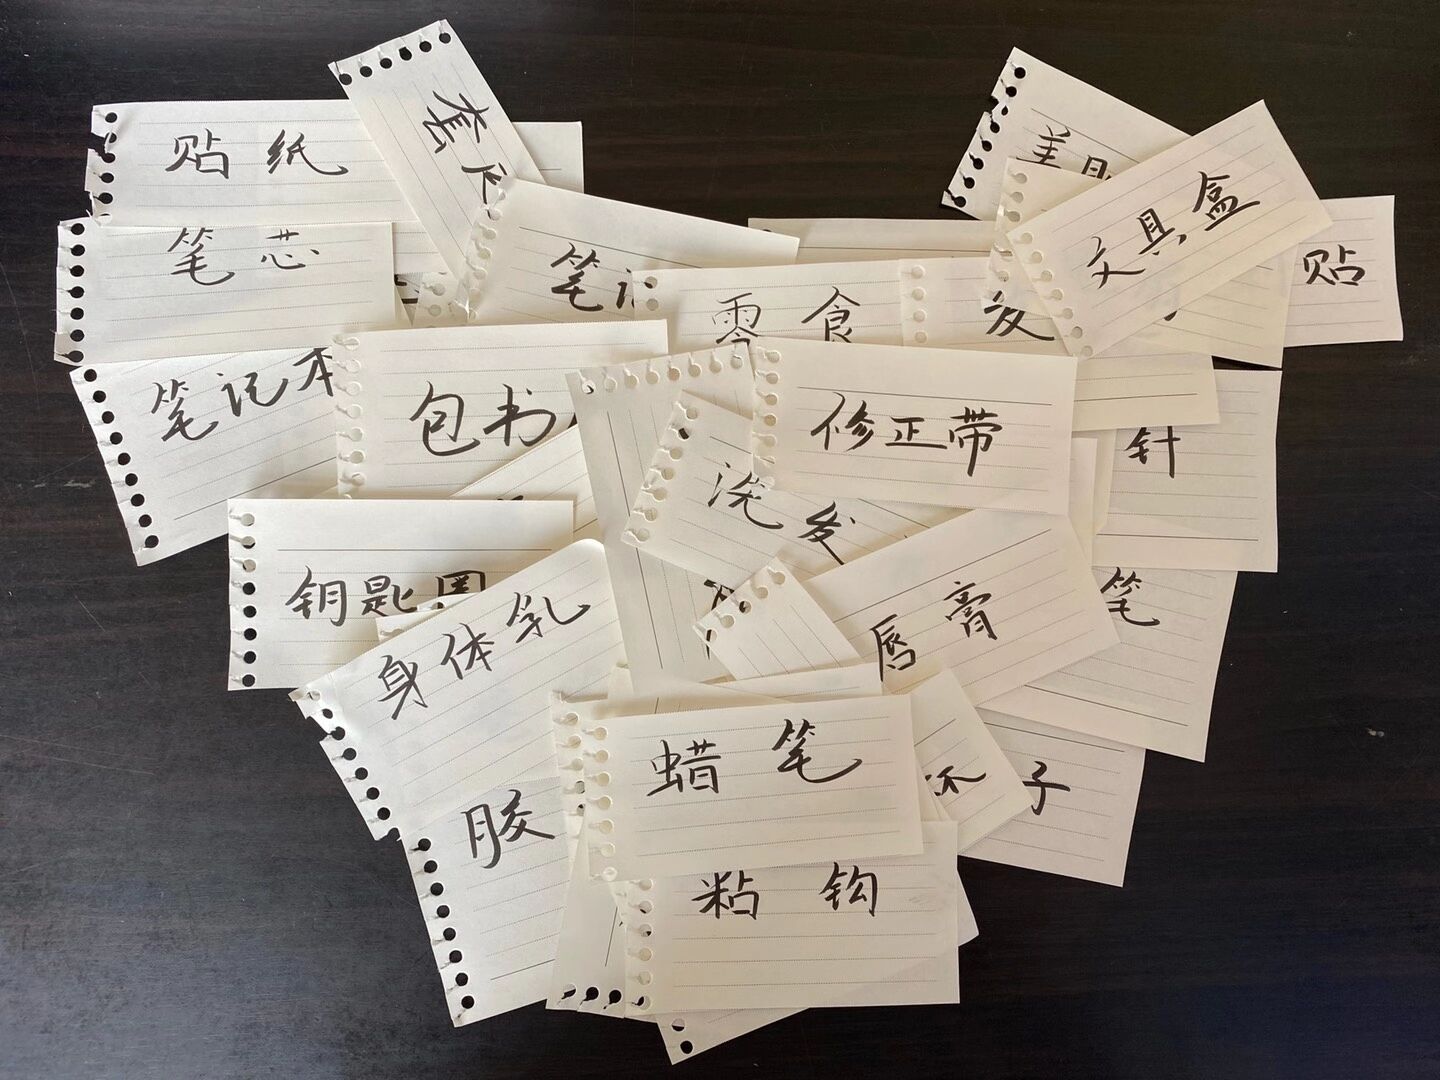 贴纸
套尺
笔芯
文具盒
贴
笔记
零食
发
笔记本
包书
修正带
针
洗发
钥匙圈
身体乳
唇膏
笔
蜡笔
胶
杯
子
粘钩